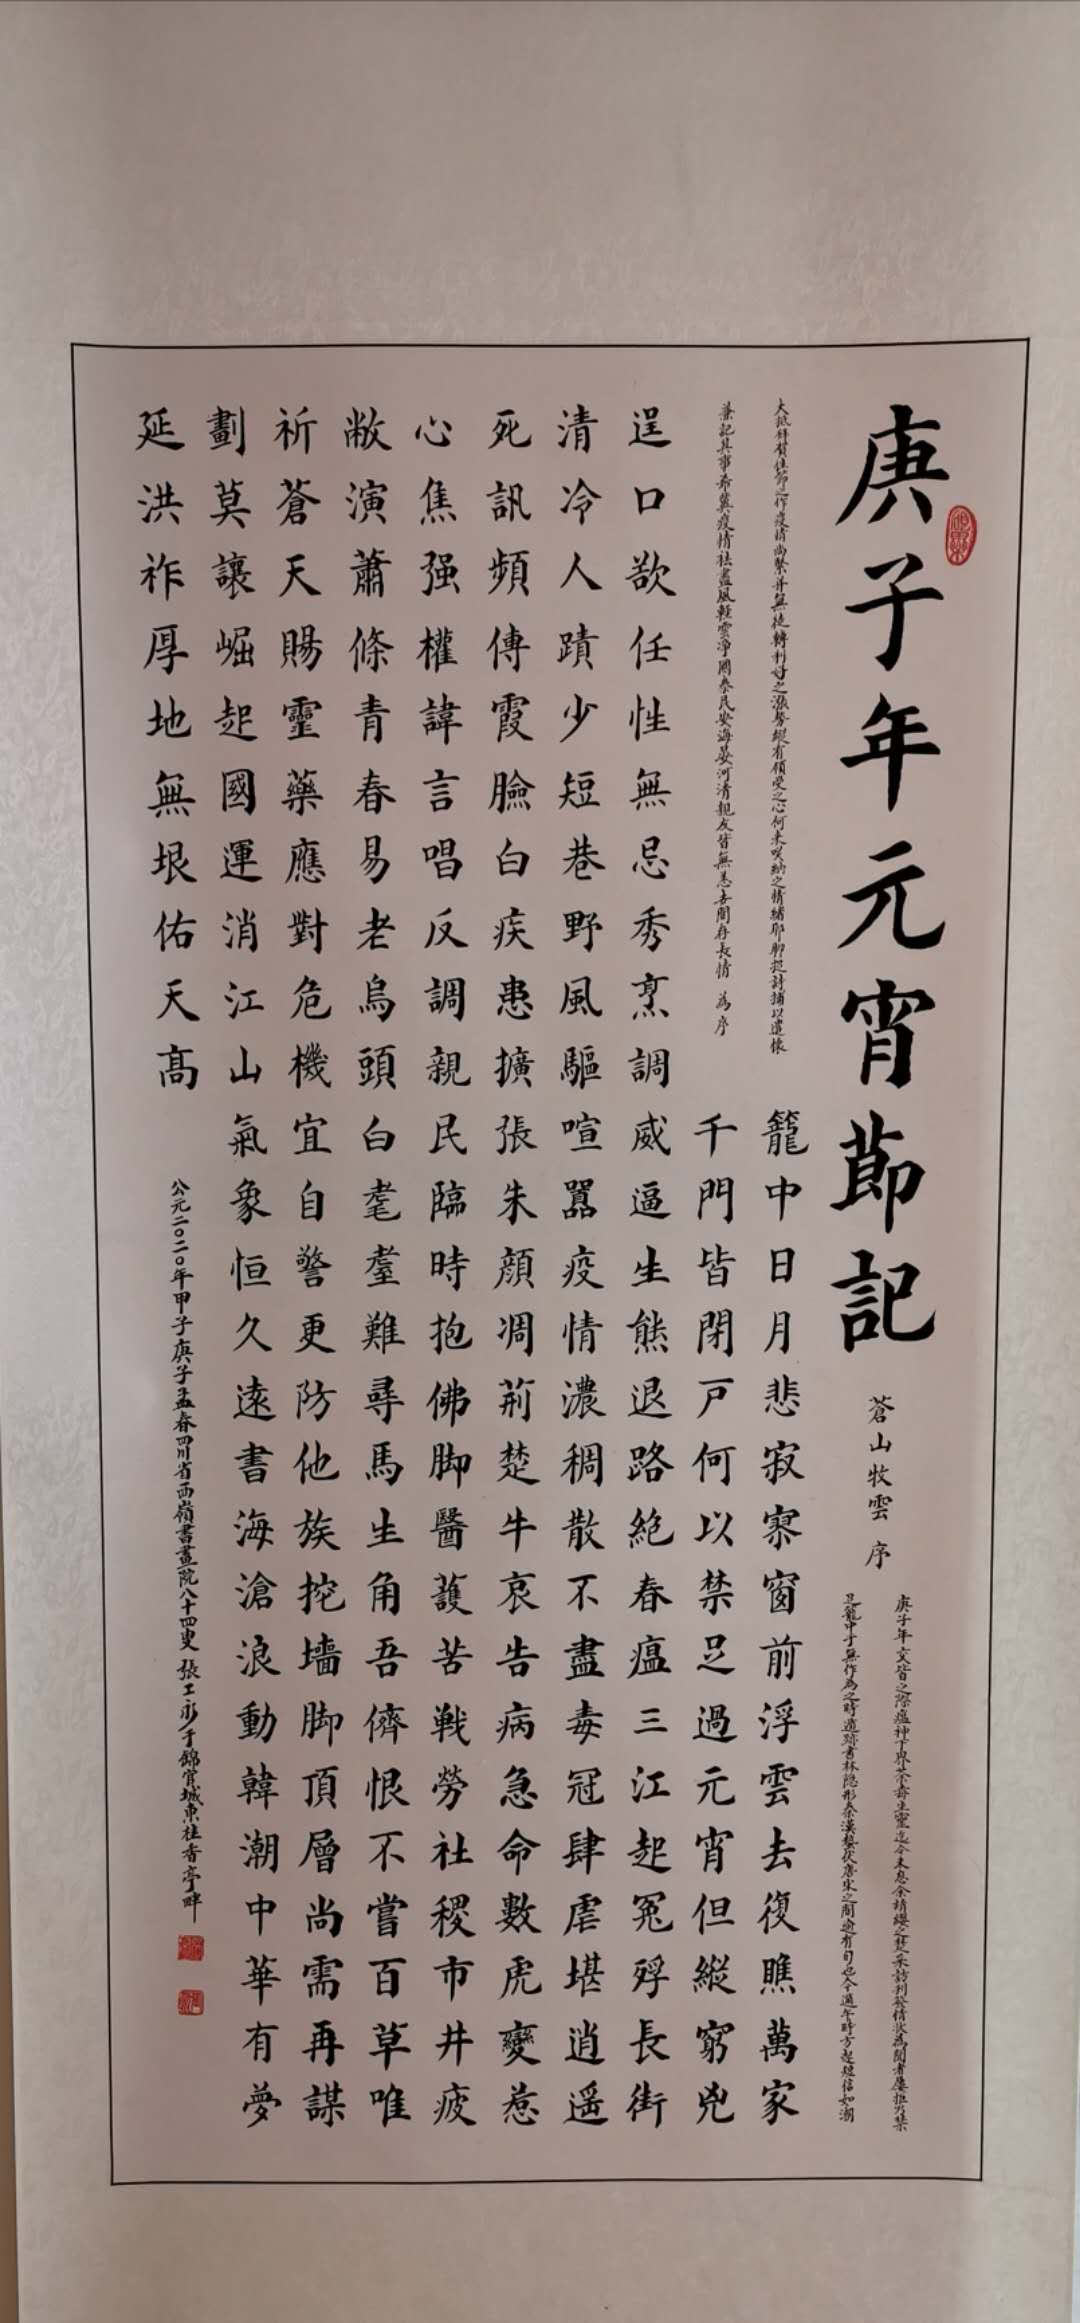 庚子年元宵節記
蒼山牧雲 序
庚子年交皆之際瘟神下界荼毒生靈迄今未息余請纓之楚采訪刊發情狀為聞者屢拒乃禁
足籠中于無作為之時遁跡書林隱形秦漢蟄伏唐宋之間逾有旬也今過午時方起短信如潮
大抵拜賀佳節之作疫情尚緊并無從轉利好之漲勢縱有領受之心何來笑納之情緒耶聊起詩捕以遣懷
兼記其事希冀疫情祛盡風輕雲淨國泰民安海晏河清親友皆無恙吉間存長情 為序
籠中日月悲寂寞窗前浮雲去復瞧萬家
千門皆閉戸何以禁足過元宵但縱窮兇
逞口欲任性無忌秀烹調威逼生熊退路絶春瘟三江起冤殍長街
清冷人蹟少短巷野風驅喧囂疫情濃稠散不盡毒冠肆虐堪逍遥
死訊頻傳霞臉白疾患擴張朱顔凋荊楚牛哀告病急命數虎變惹
心焦强權諱言唱反調親民臨時抱佛脚醫護苦戦勞社稷市井疲
敝演蕭條青春易老烏頭白耄耋難尋馬生角吾儕恨不嘗百草唯
祈蒼天賜靈藥應對危機宜自警更防他族挖墻脚頂層尚需再謀
劃莫讓崛起國運消江山氣象恒久遠書海滄浪動韓潮中華有夢
延洪祚厚地無垠佑天高
公元二〇二〇年甲子庚子孟春四川省西嶺書畫院八十四叟 張工永于錦官城東桂香亭畔